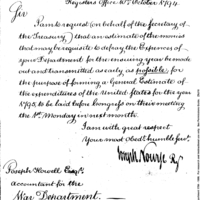 Registers Office 10th October 1794.
Sir
I am to request (on behalf of the Secretary of
the Treasury,) that an estimate of the monies
that may be requisite to defray the Expences of
your Department for the ensuing year be made
out and transmitted as early as possible for
the purpose of forming a General Estimate of
the expenditures of the United States for the year
1795, to be laid before Congress on their meeting
the 1st. Monday in next month
I am with great respect
Your most obedt. humble Servt.
Joseph Nourse Rr.
Joseph Howell Esqr.
Accountant for the
War Department.